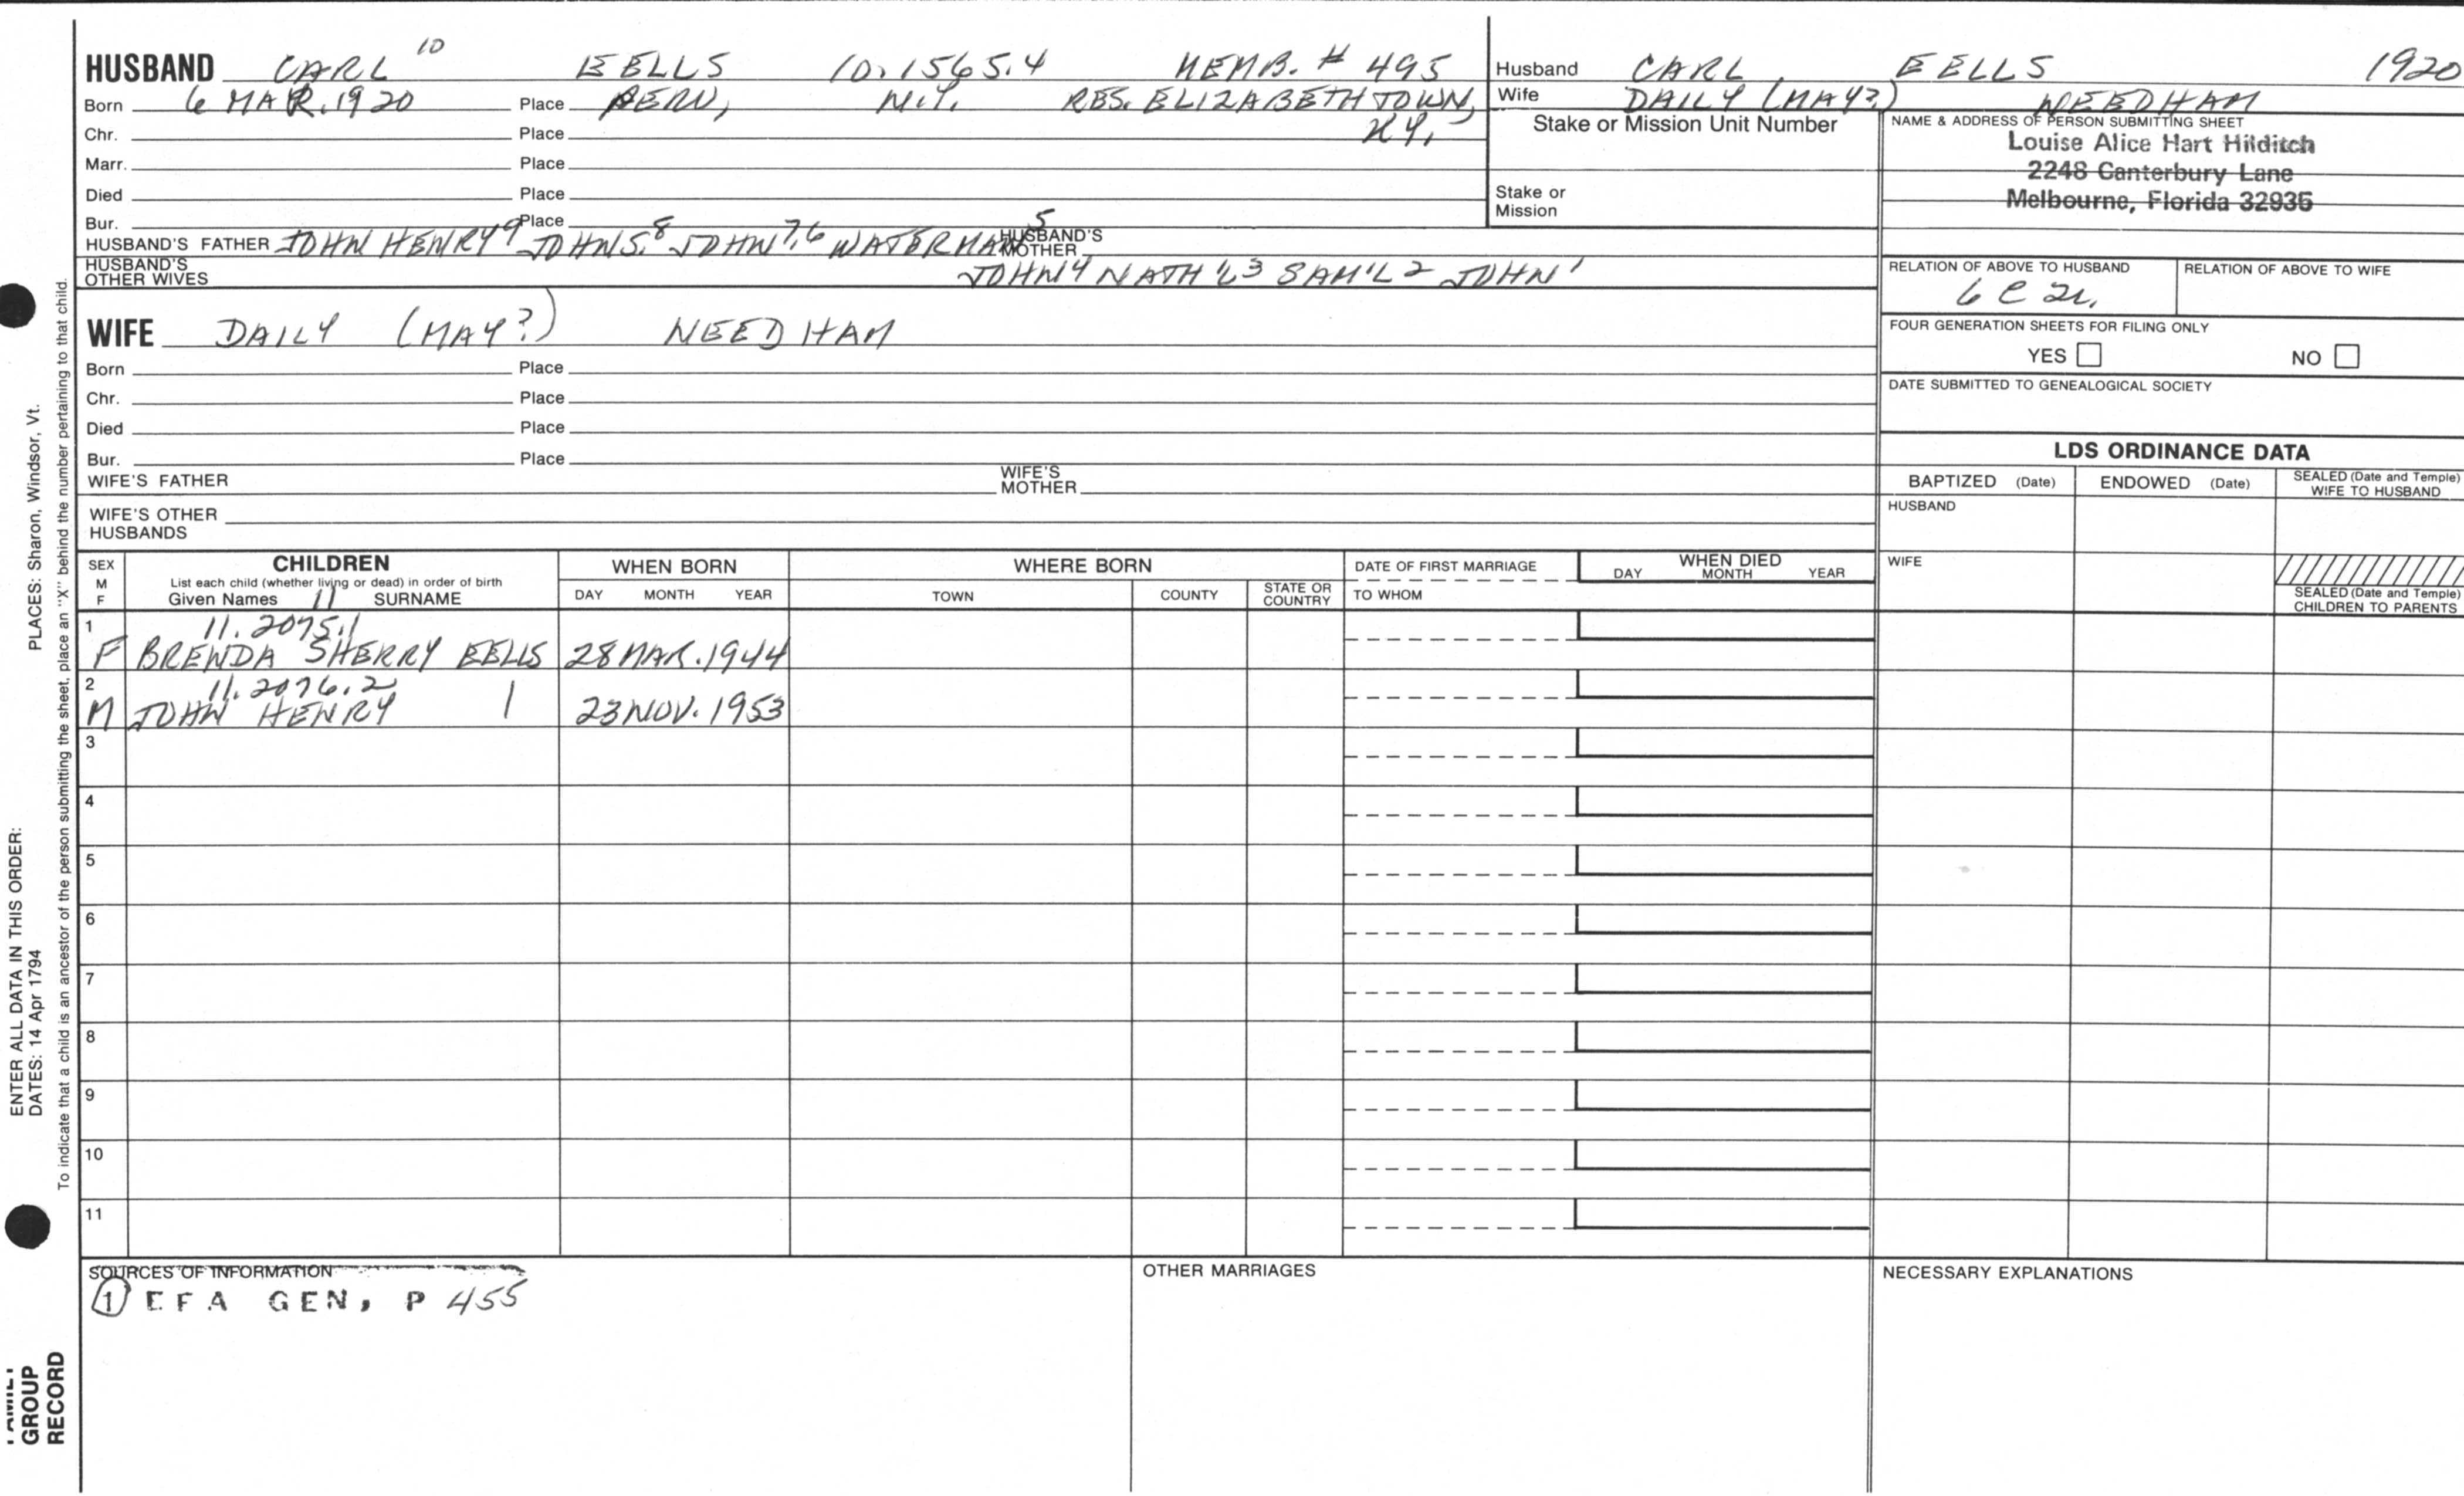 HUSBAND CARL 10 EELLS 10.1565.4 MEMB. # 495
Born 6 MAR. 1920 Place PERU, N.Y. RES. ELIZABETHTOWN,
Chr. Place KY.
Marr. Place
Died Place
Bur. Place
HUSBAND'S FATHER JOHN HENRY9 JOHN S.8 JOHN7,6 WATERMAN5 HUSBAND'S MOTHER
HUSBAND'S OTHER WIVES JOHN4 NATH'L3 SAM'L2 JOHN1
Husband CARL, EELLS 1920
Wife DAILY (MAY?) NEEDHAM
Stake or Mission Unit Number
Stake or
Mission
NAME & ADDRESS OF PERSON SUBMITTING SHEET
Louise Alice Hart Hilditch
2248 Canterbury Lane
Melbourne, Florida 32935
RELATION OF ABOVE TO HUSBAND RELATION OF ABOVE TO WIFE
6 C 2r.
FOUR GENERATION SHEETS FOR FILING ONLY
YES NO
DATE SUBMITTED TO GENEALOGICAL SOCIETY
WIFE DAILY (MAY?) NEEDHAM
Born Place
Chr. Place
Died Place
Bur. Place
WIFE'S FATHER WIFE'S MOTHER
WIFE'S OTHER
HUSBANDS
LDS ORDINANCE DATA
BAPTIZED (Date) ENDOWED (Date) SEALED (Date and Temple) WIFE TO HUSBAND
HUSBAND
WIFE
SEALED (Date and Temple) CHILDREN TO PARENTS
SEX M F
CHILDREN
List each child (whether living or dead) in order of birth
Given Names 11 SURNAME
WHEN BORN
DAY MONTH YEAR
WHERE BORN
TOWN COUNTY STATE OR COUNTRY
DATE OF FIRST MARRIAGE
TO WHOM
WHEN DIED
DAY MONTH YEAR
1 11.2075.1
F BRENDA SHERRY EELLS 28 MAR. 1944
2 11.2076.2
M JOHN HENRY 23 NOV. 1953
3
4
5
6
7
8
9
10
11
SOURCES OF INFORMATION
1 EFA GEN, P 455
OTHER MARRIAGES
NECESSARY EXPLANATIONS
ENTER ALL DATA IN THIS ORDER:
DATES: 14 Apr 1794 PLACES: Sharon, Windsor, Vt.
To indicate that a child is an ancestor of the person submitting the sheet, place an "X" behind the number pertaining to that child.
FAMILY
GROUP
RECORD